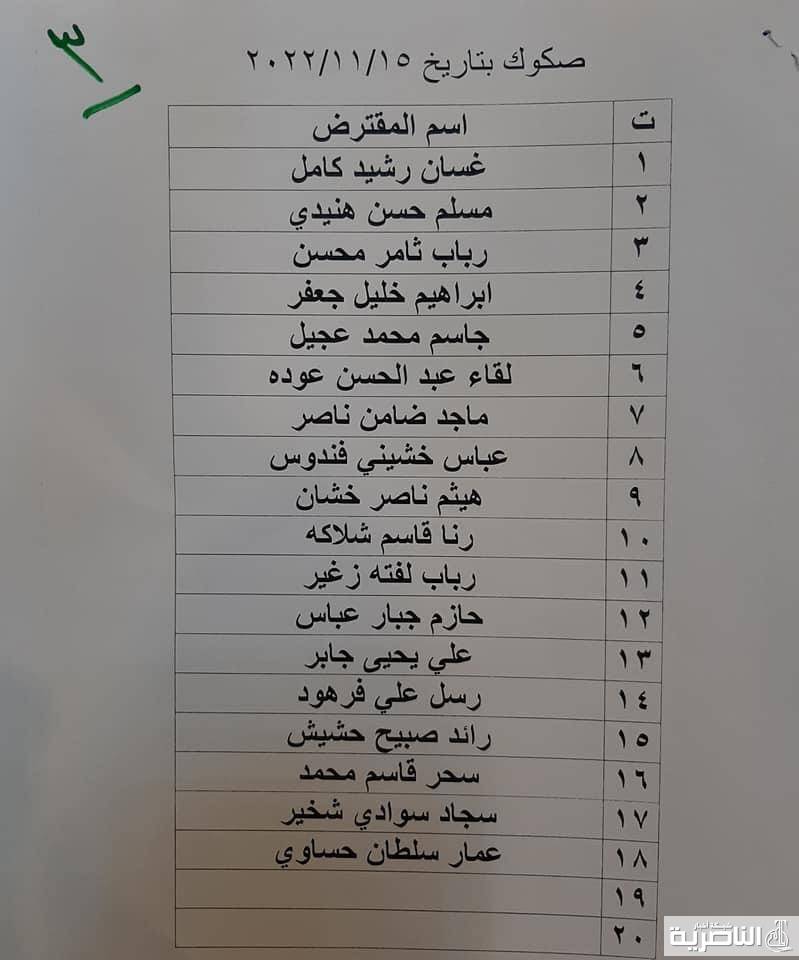 ٣
صكوك بتاريخ ٢٠٢٢/١١/١٥
ت اسم المقترض
١ غسان رشيد كامل
٢ مسلم حسن هنيدي
٣ رباب ثامر محسن
٤ ابراهيم خليل جعفر
٥ جاسم محمد عجيل
٦ لقاء عبد الحسن عوده
٧ ماجد ضامن ناصر
٨ عباس خشيني فندوس
٩ هيثم ناصر خشان
١٠ رنا قاسم شلاكه
١١ رباب لفته زغير
١٢ حازم جبار عباس
١٣ علي يحيى جابر
١٤ رسل علي فرهود
١٥ رائد صبيح حشيش
١٦ سحر قاسم محمد
١٧ سجاد سوادي شخير
١٨ عمار سلطان حساوي
١٩
٢٠
شبكة أخبار
الناصرية